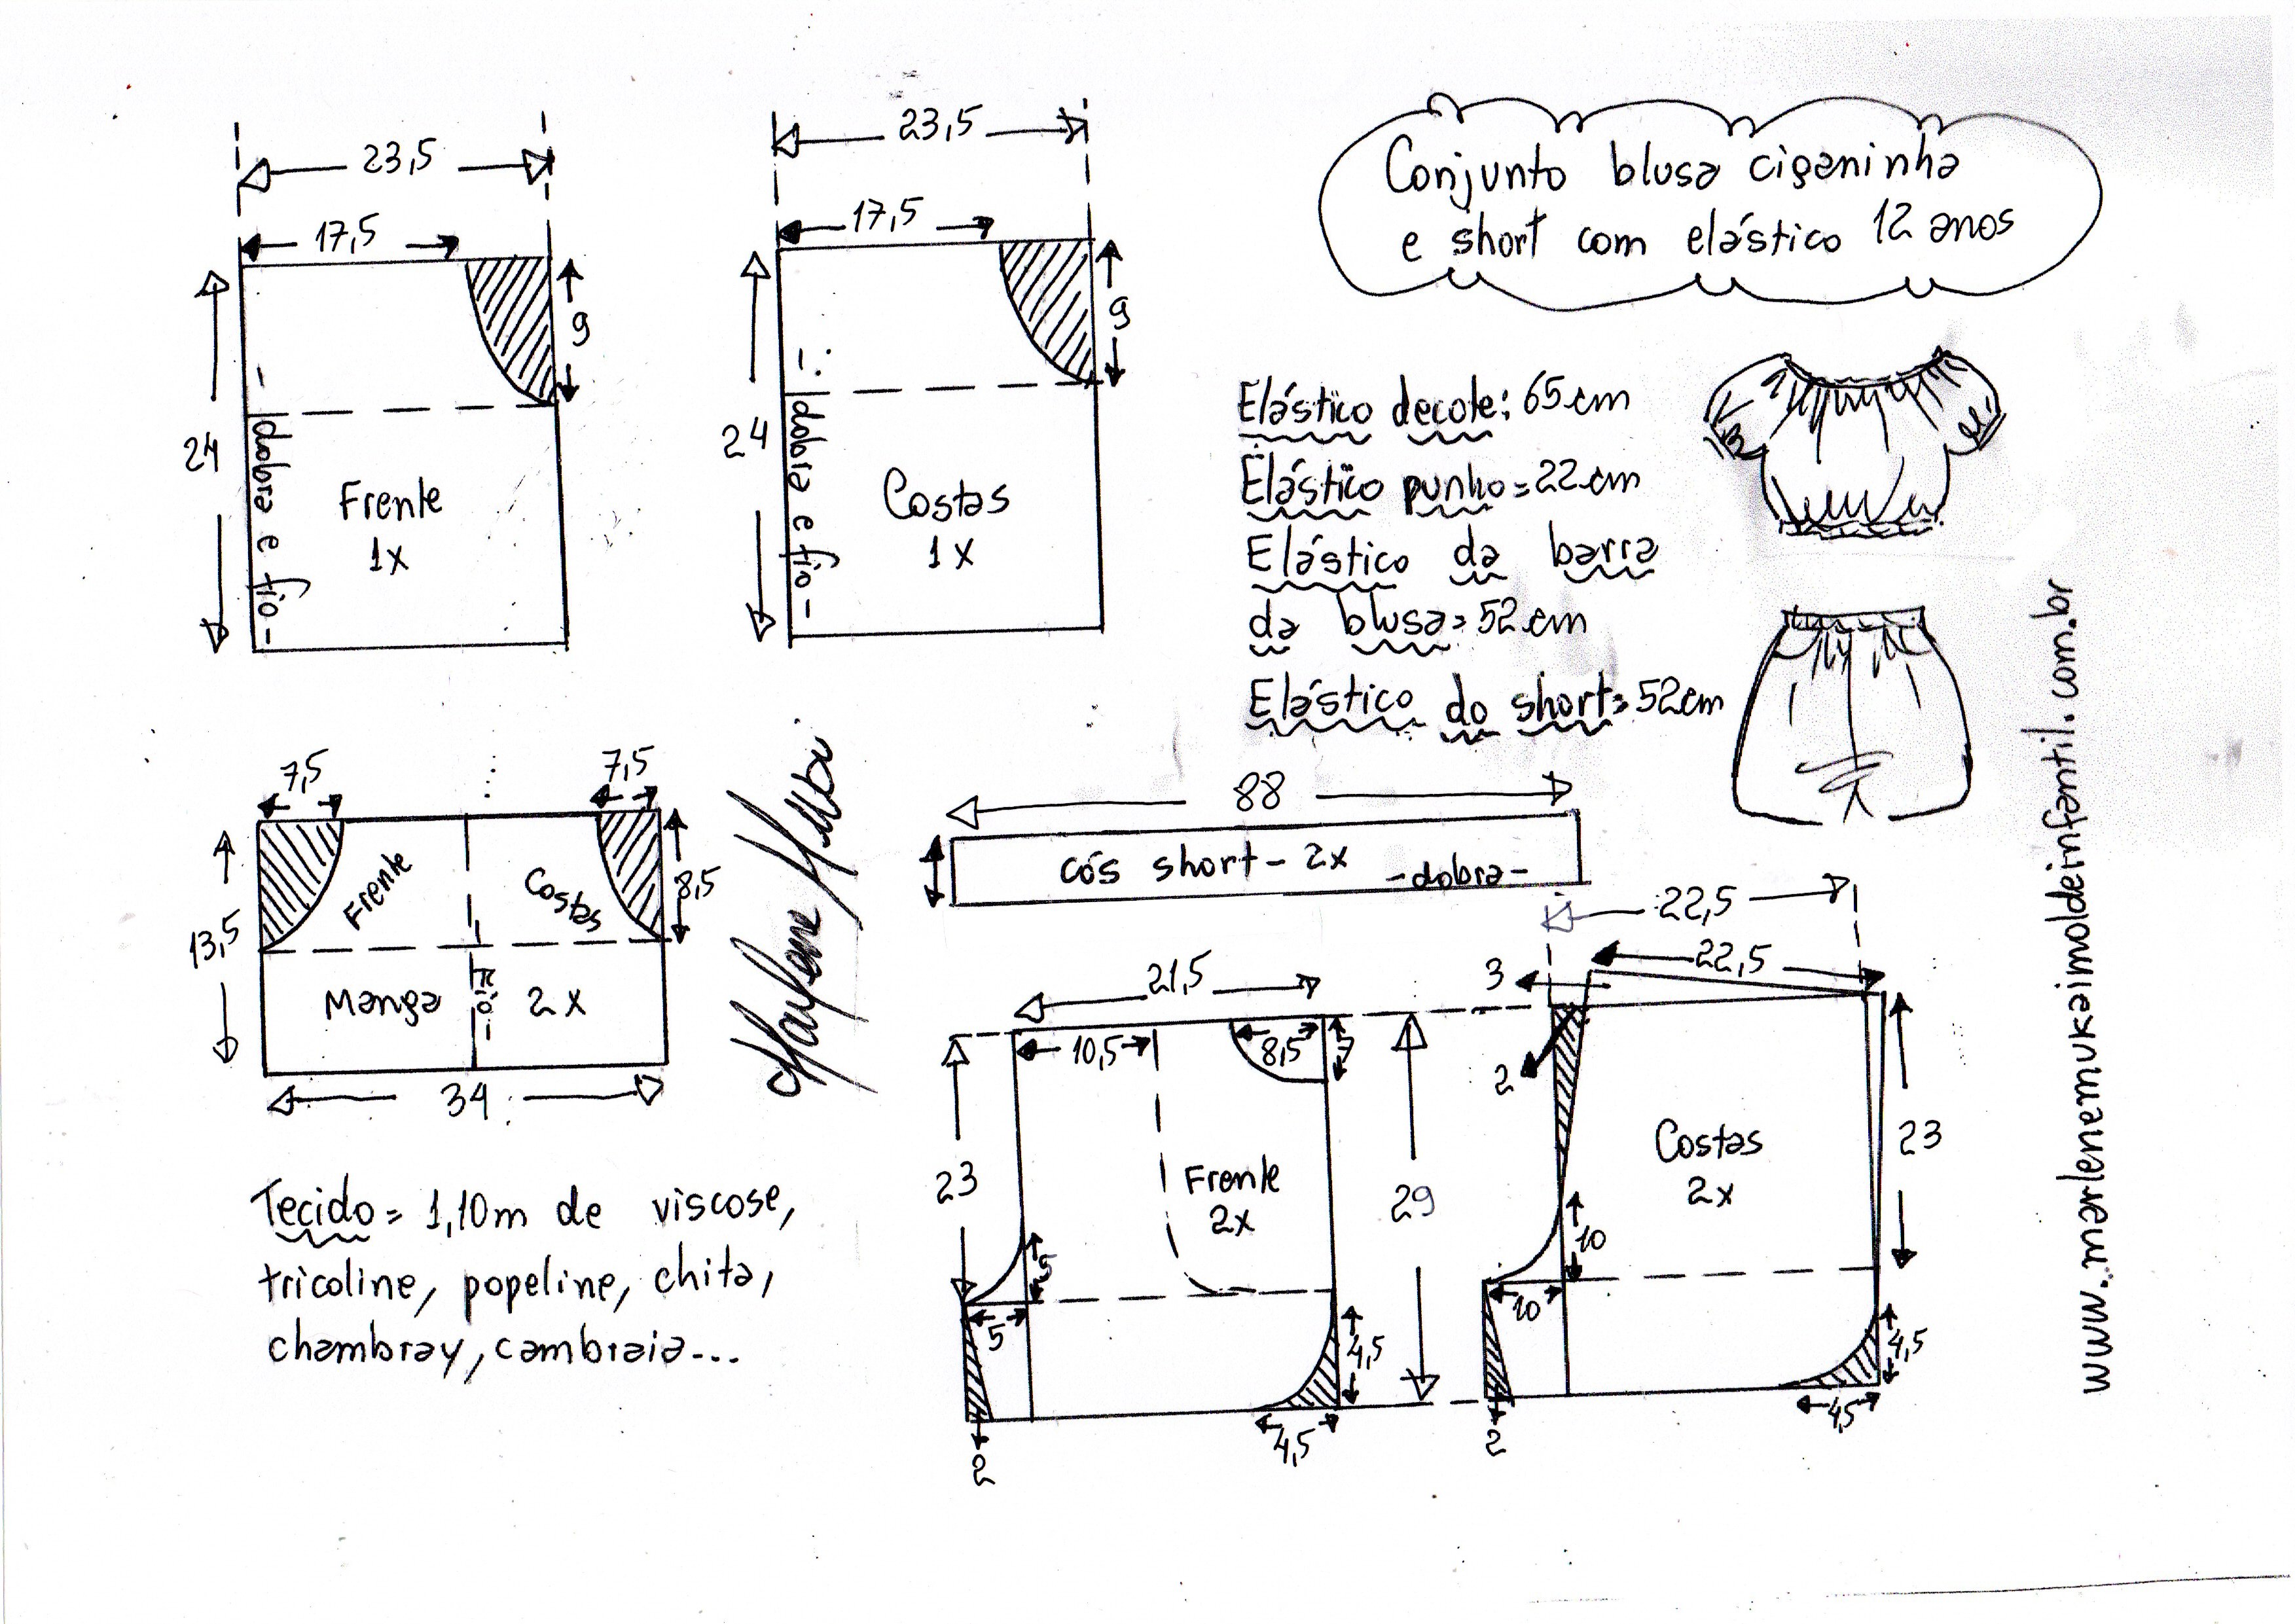 Conjunto blusa ciganinha
e short com elástico 12 anos
23,5
17,5
24
9
dobra e fio
Frente
1x
23,5
17,5
24
9
dobra e fio
Costas
1x
Elástico decote: 65cm
Elástico punho = 22cm
Elástico da barra
da blusa = 52cm
Elástico do short = 52cm
7,5
7,5
13,5
8,5
Frente
Costas
Manga
fio
2x
34
Marlene Mukai
88
cós short - 2x -dobra-
21,5
10,5
8,5
7
23
29
Frente
2x
5
5
4,5
4,5
2
22,5
22,5
3
2
Costas
2x
23
10
10
4,5
4,5
2
Tecido = 1,10m de viscose,
tricoline, popeline, chita,
chambray, cambraia...
www.marlenemukaimoldeinfantil.com.br